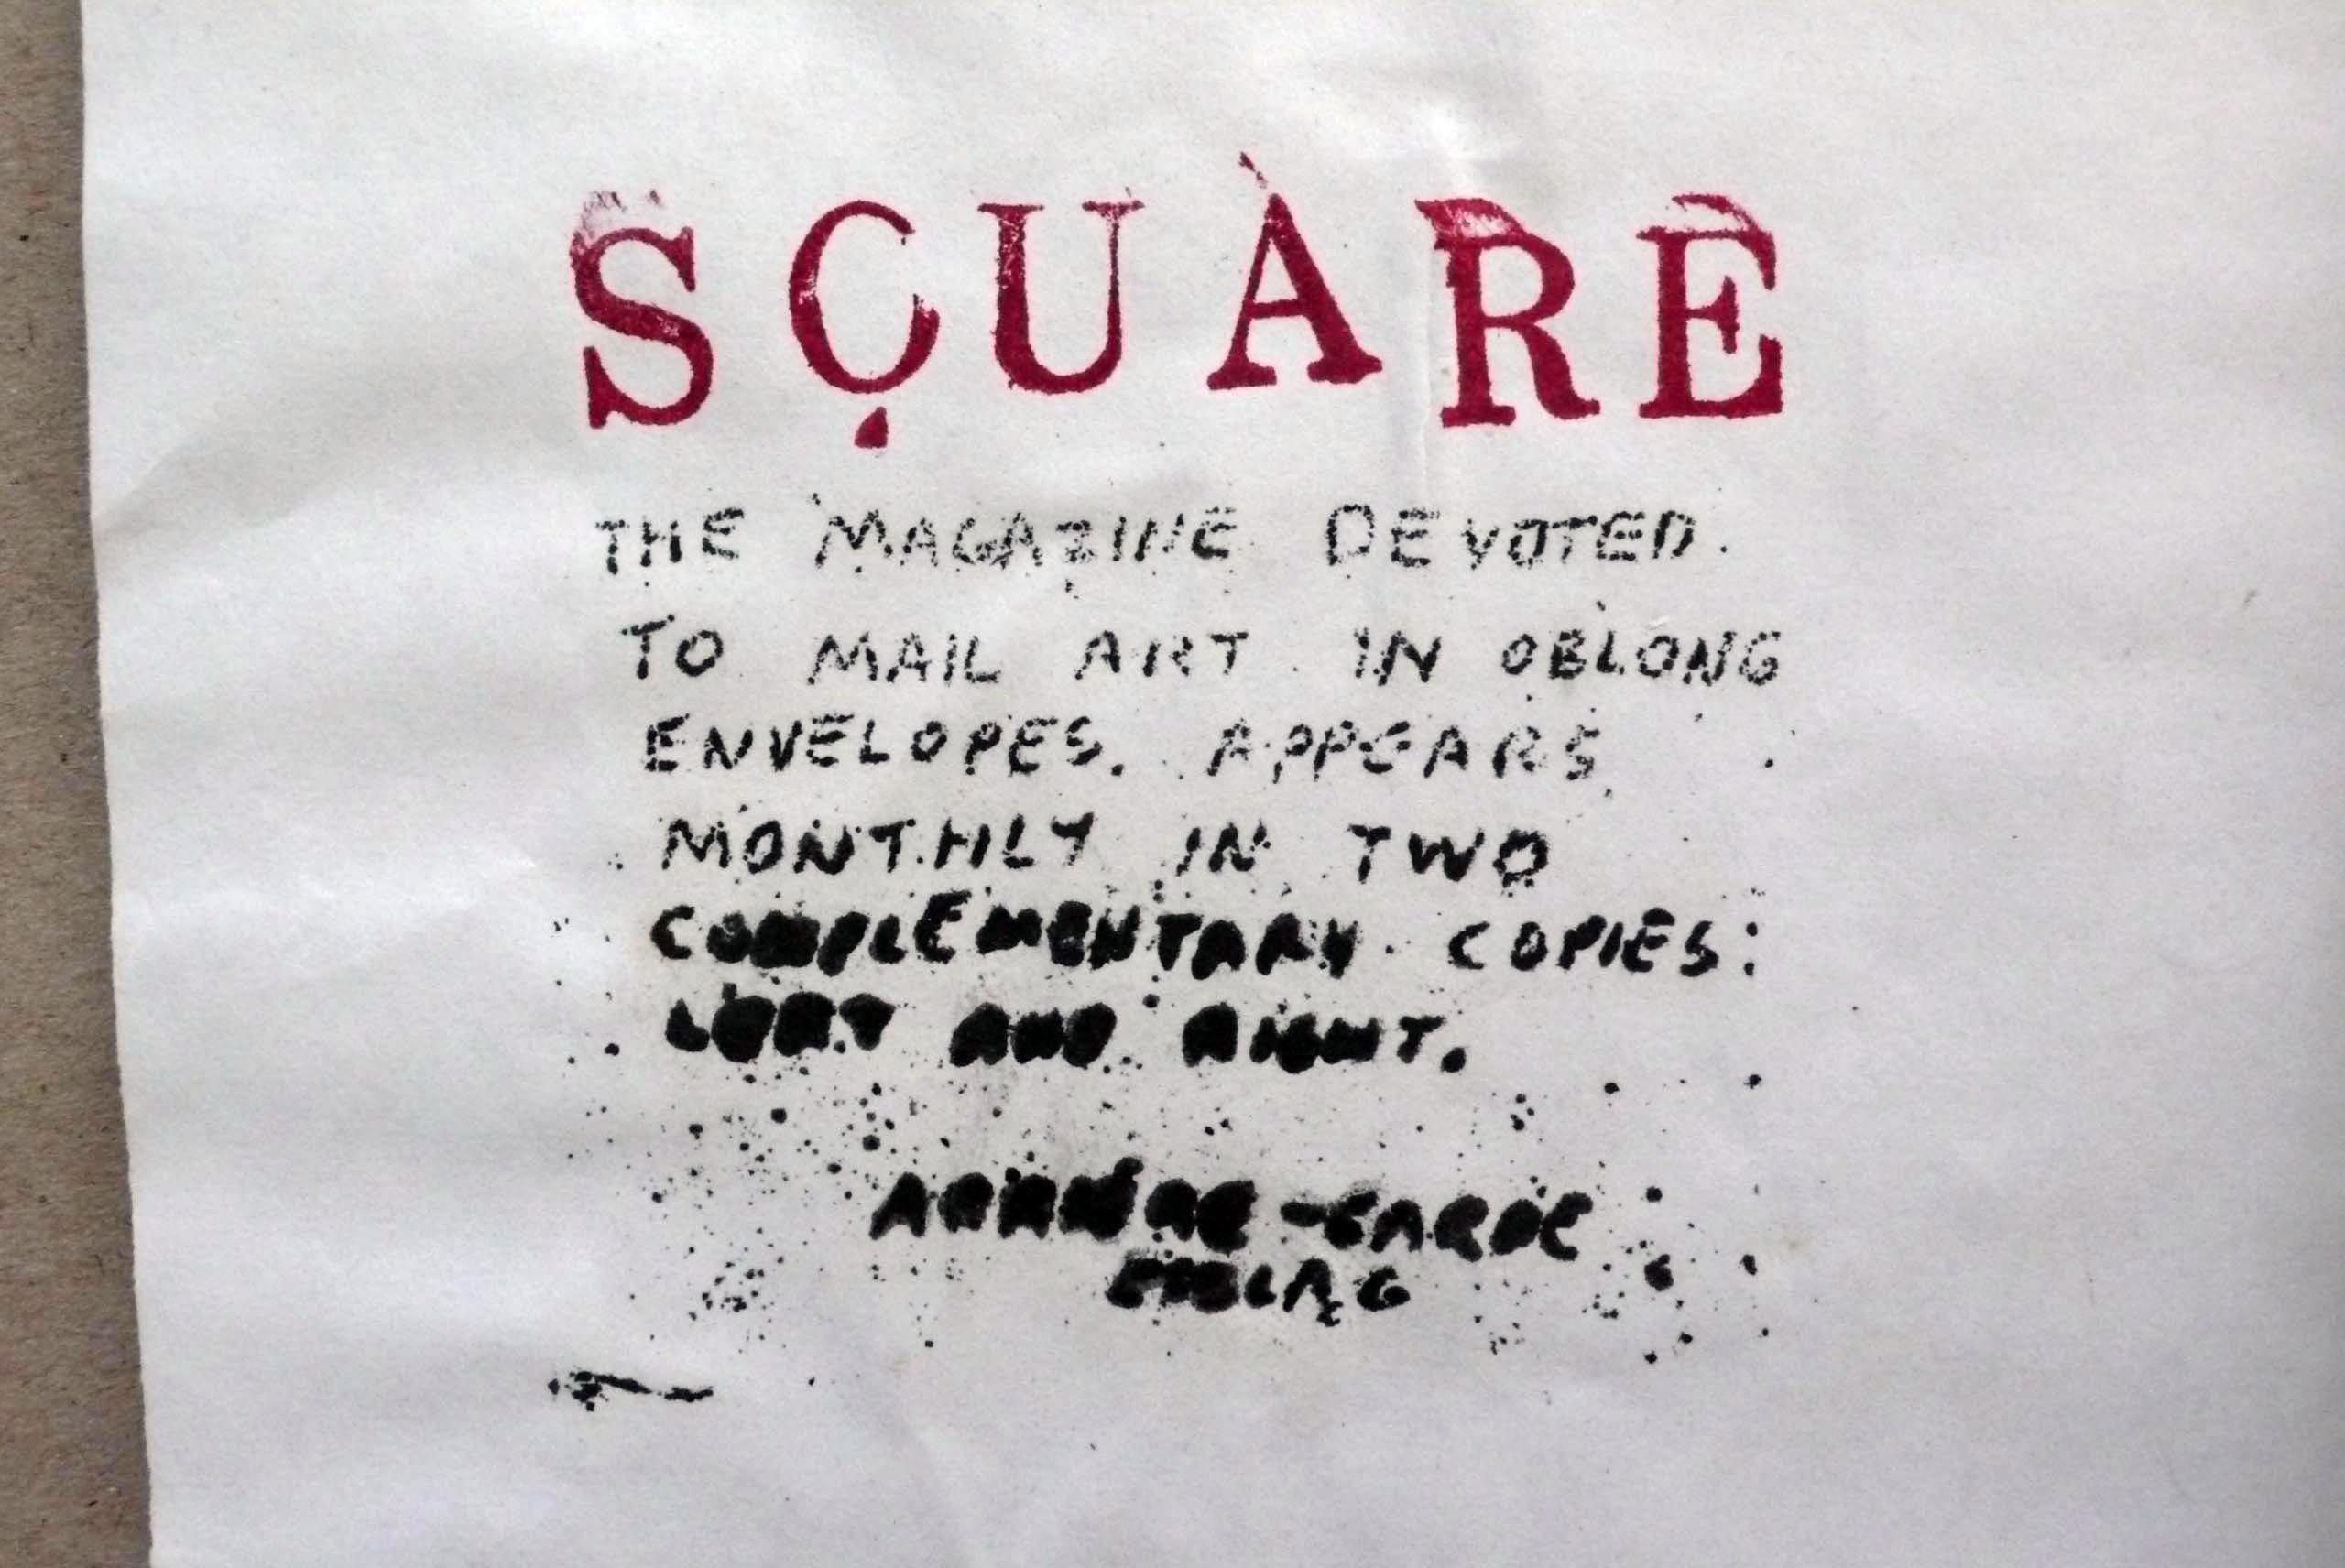 SQUARE
THE MAGAZINE DEVOTED
TO MAIL ART IN OBLONG
ENVELOPES. APPEARS
MONTHLY IN TWO
COMPLEMENTARY COPIES:
AND RIGHT.